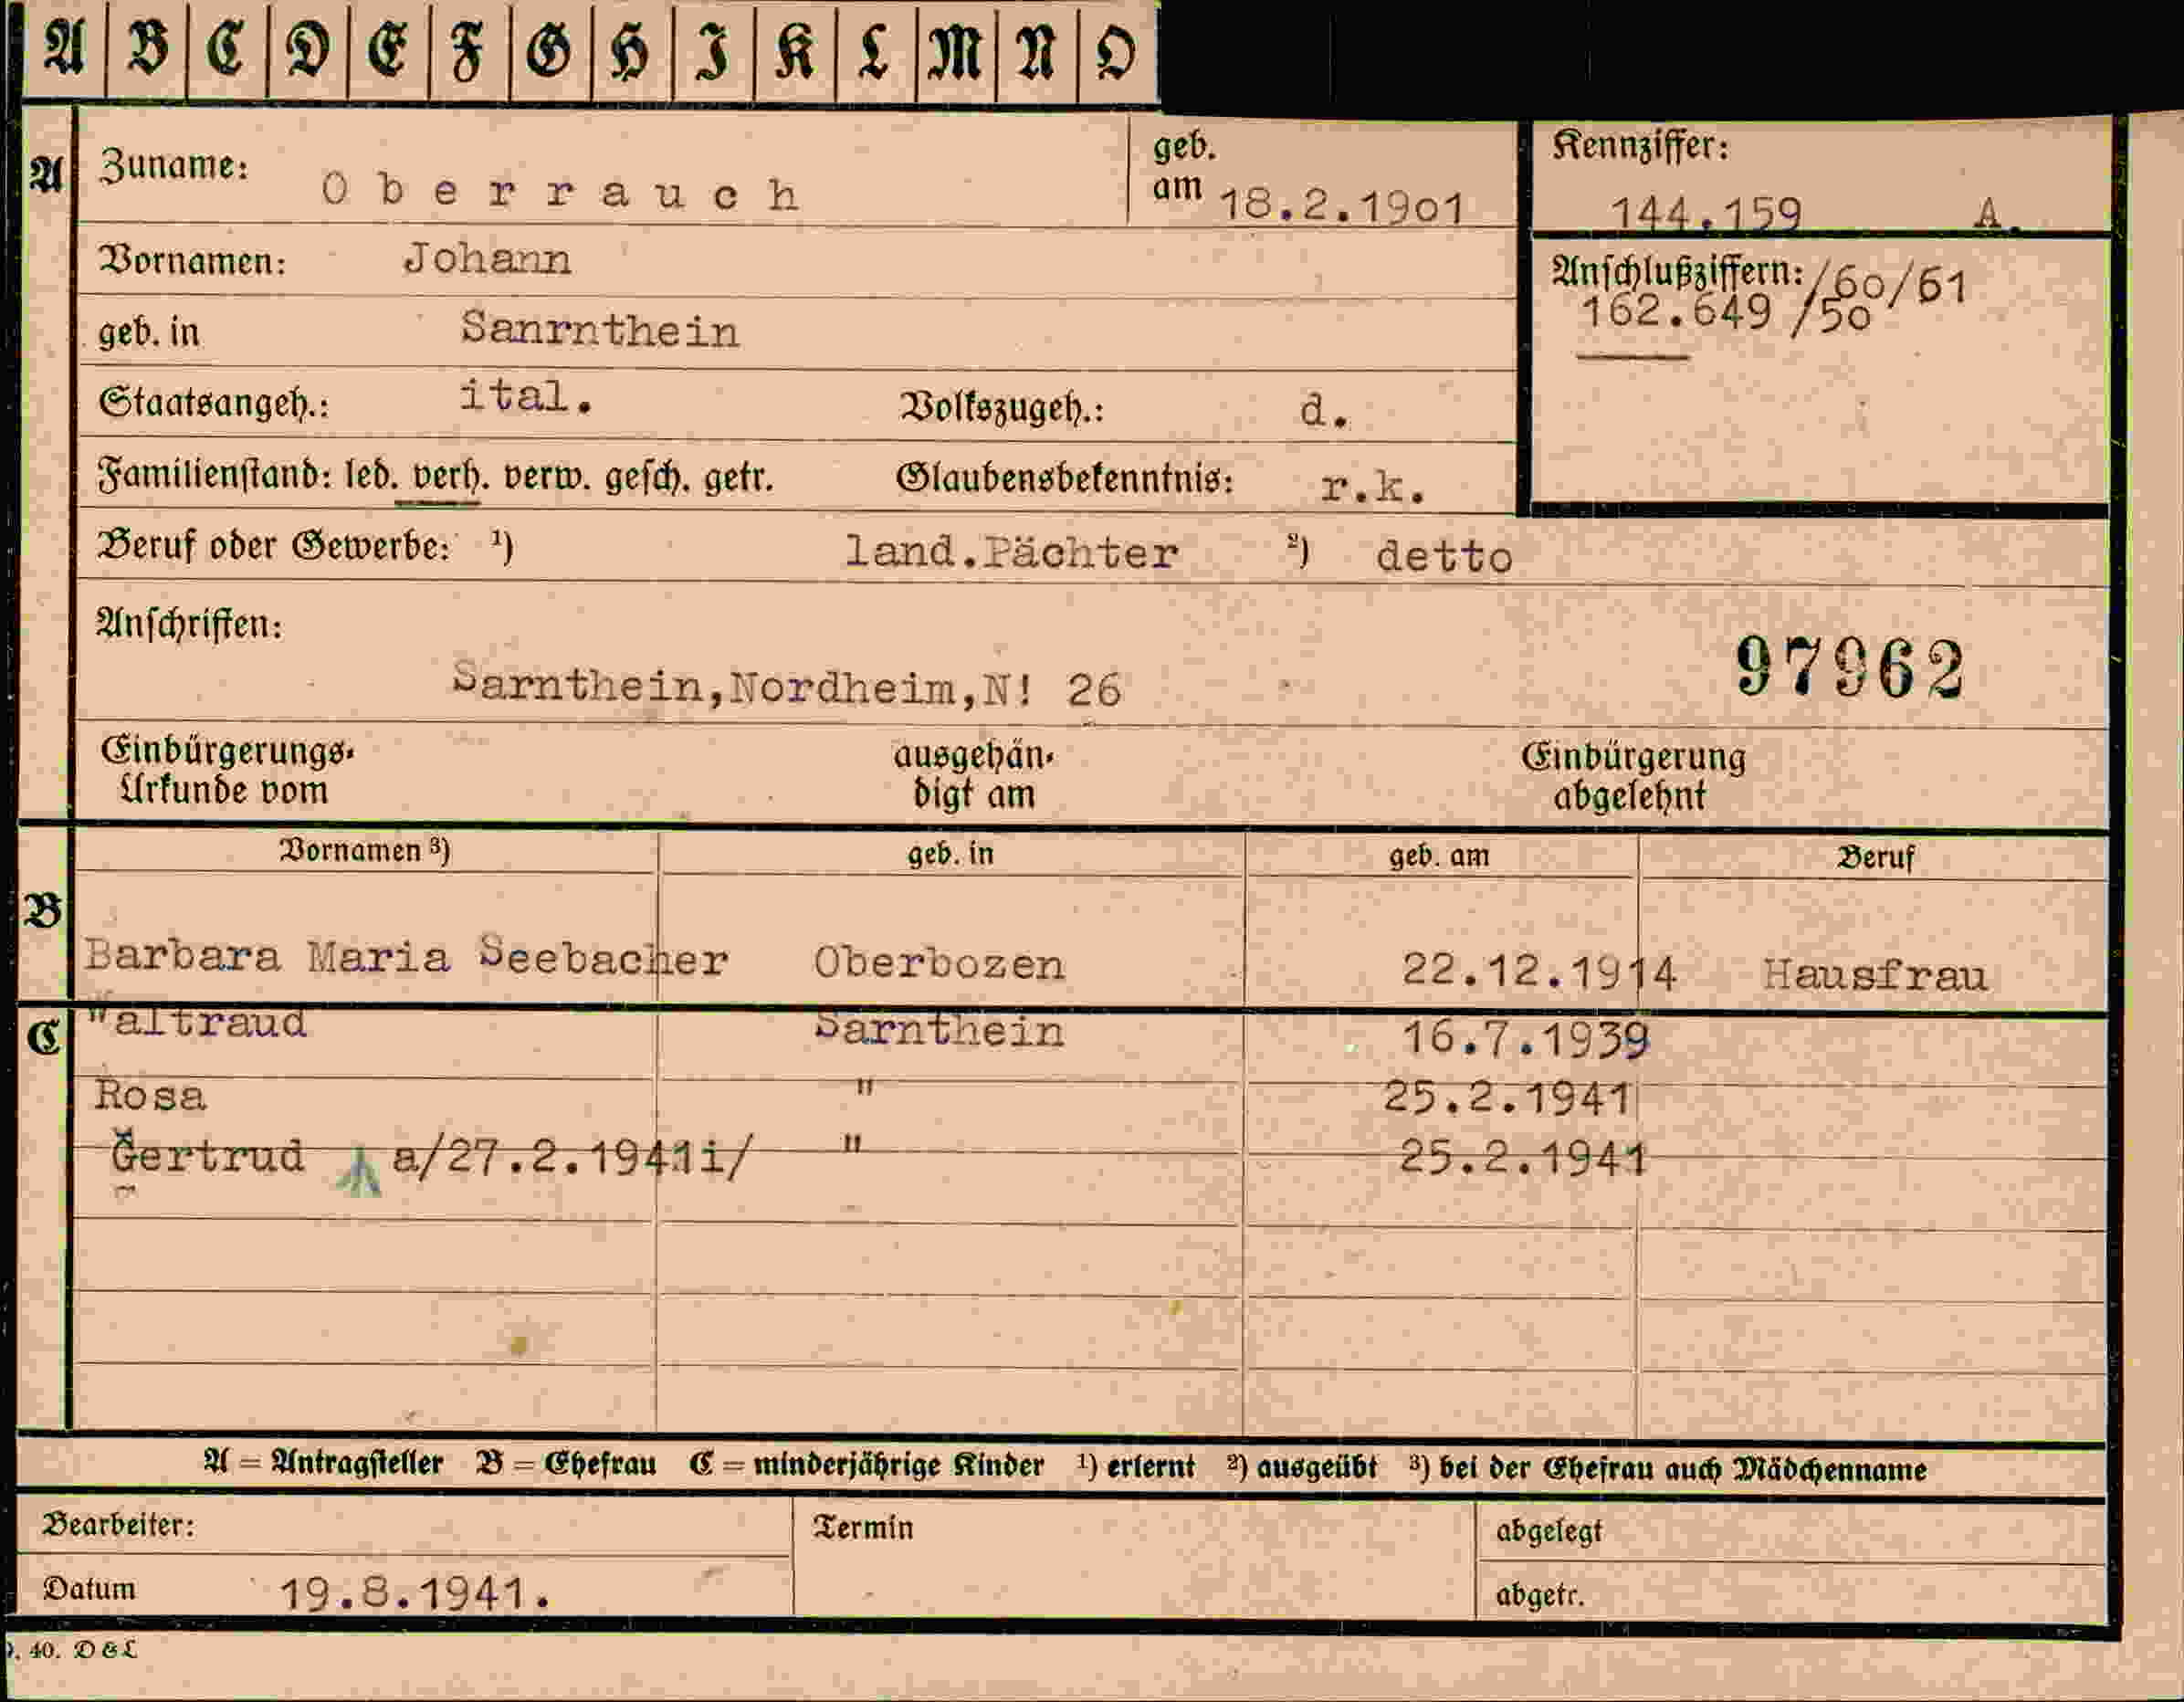 A B C D E F G H I K L M N O
A Zuname: Oberrauch geb. am 18.2.1901 Kennziffer: 144.159 A.
Vornamen: Johann Anschlußziffern: /60/61
162.649 /50
geb. in Sanrnthein
Staatsangeh.: ital. Volkszugeh.: d.
Familienstand: led. verh. verw. gesch. getr. Glaubensbekenntnis: r.k.
Beruf oder Gewerbe: ¹) land.Pächter ²) detto
Anschriften:
97962
Sarnthein,Nordheim,N! 26
Einbürgerungs-Urkunde vom ausgehändigt am Einbürgerung abgelehnt
Vornamen ³) geb. in geb. am Beruf
B
Barbara Maria Seebacher Oberbozen 22.12.1914 Hausfrau
C Waltraud Sarnthein 16.7.1939
Rosa " 25.2.1941
Gertrud a/27.2.1941i/ " 25.2.1941
A = Antragsteller B = Ehefrau C = minderjährige Kinder ¹) erlernt ²) ausgeübt ³) bei der Ehefrau auch Mädchenname
Bearbeiter: Termin abgelegt
Datum 19.8.1941. abgetr.
40. D & L